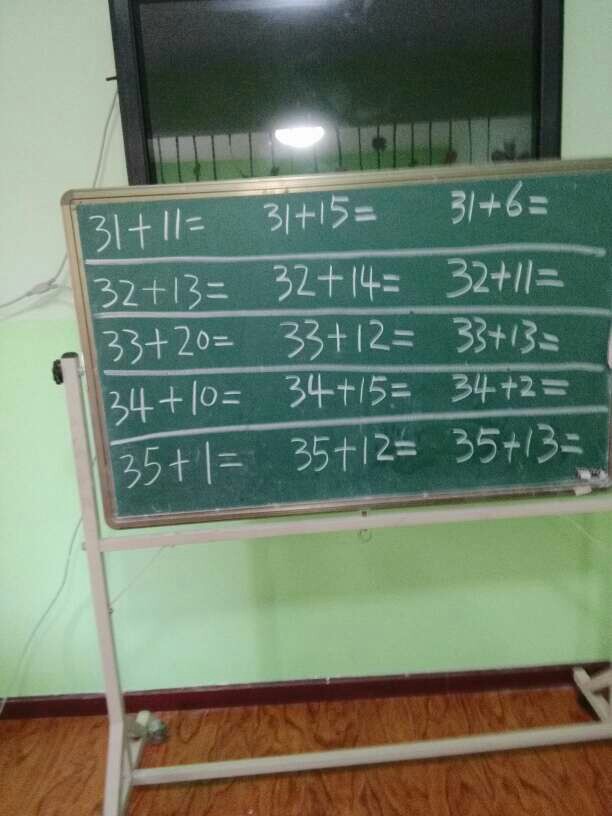 31+11= 31+15= 31+6=
32+13= 32+14= 32+11=
33+20= 33+12= 33+13=
34+10= 34+15= 34+2=
35+1= 35+12= 35+13=